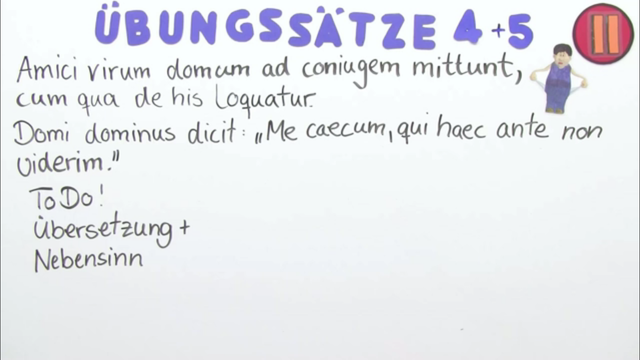 ÜBUNGSSÄTZE 4+5
Amici virum domum ad coniugem mittunt,
cum qua de his loquatur.
Domi dominus dicit: „Me caecum, qui haec ante non
viderim."
ToDo!
Übersetzung +
Nebensinn